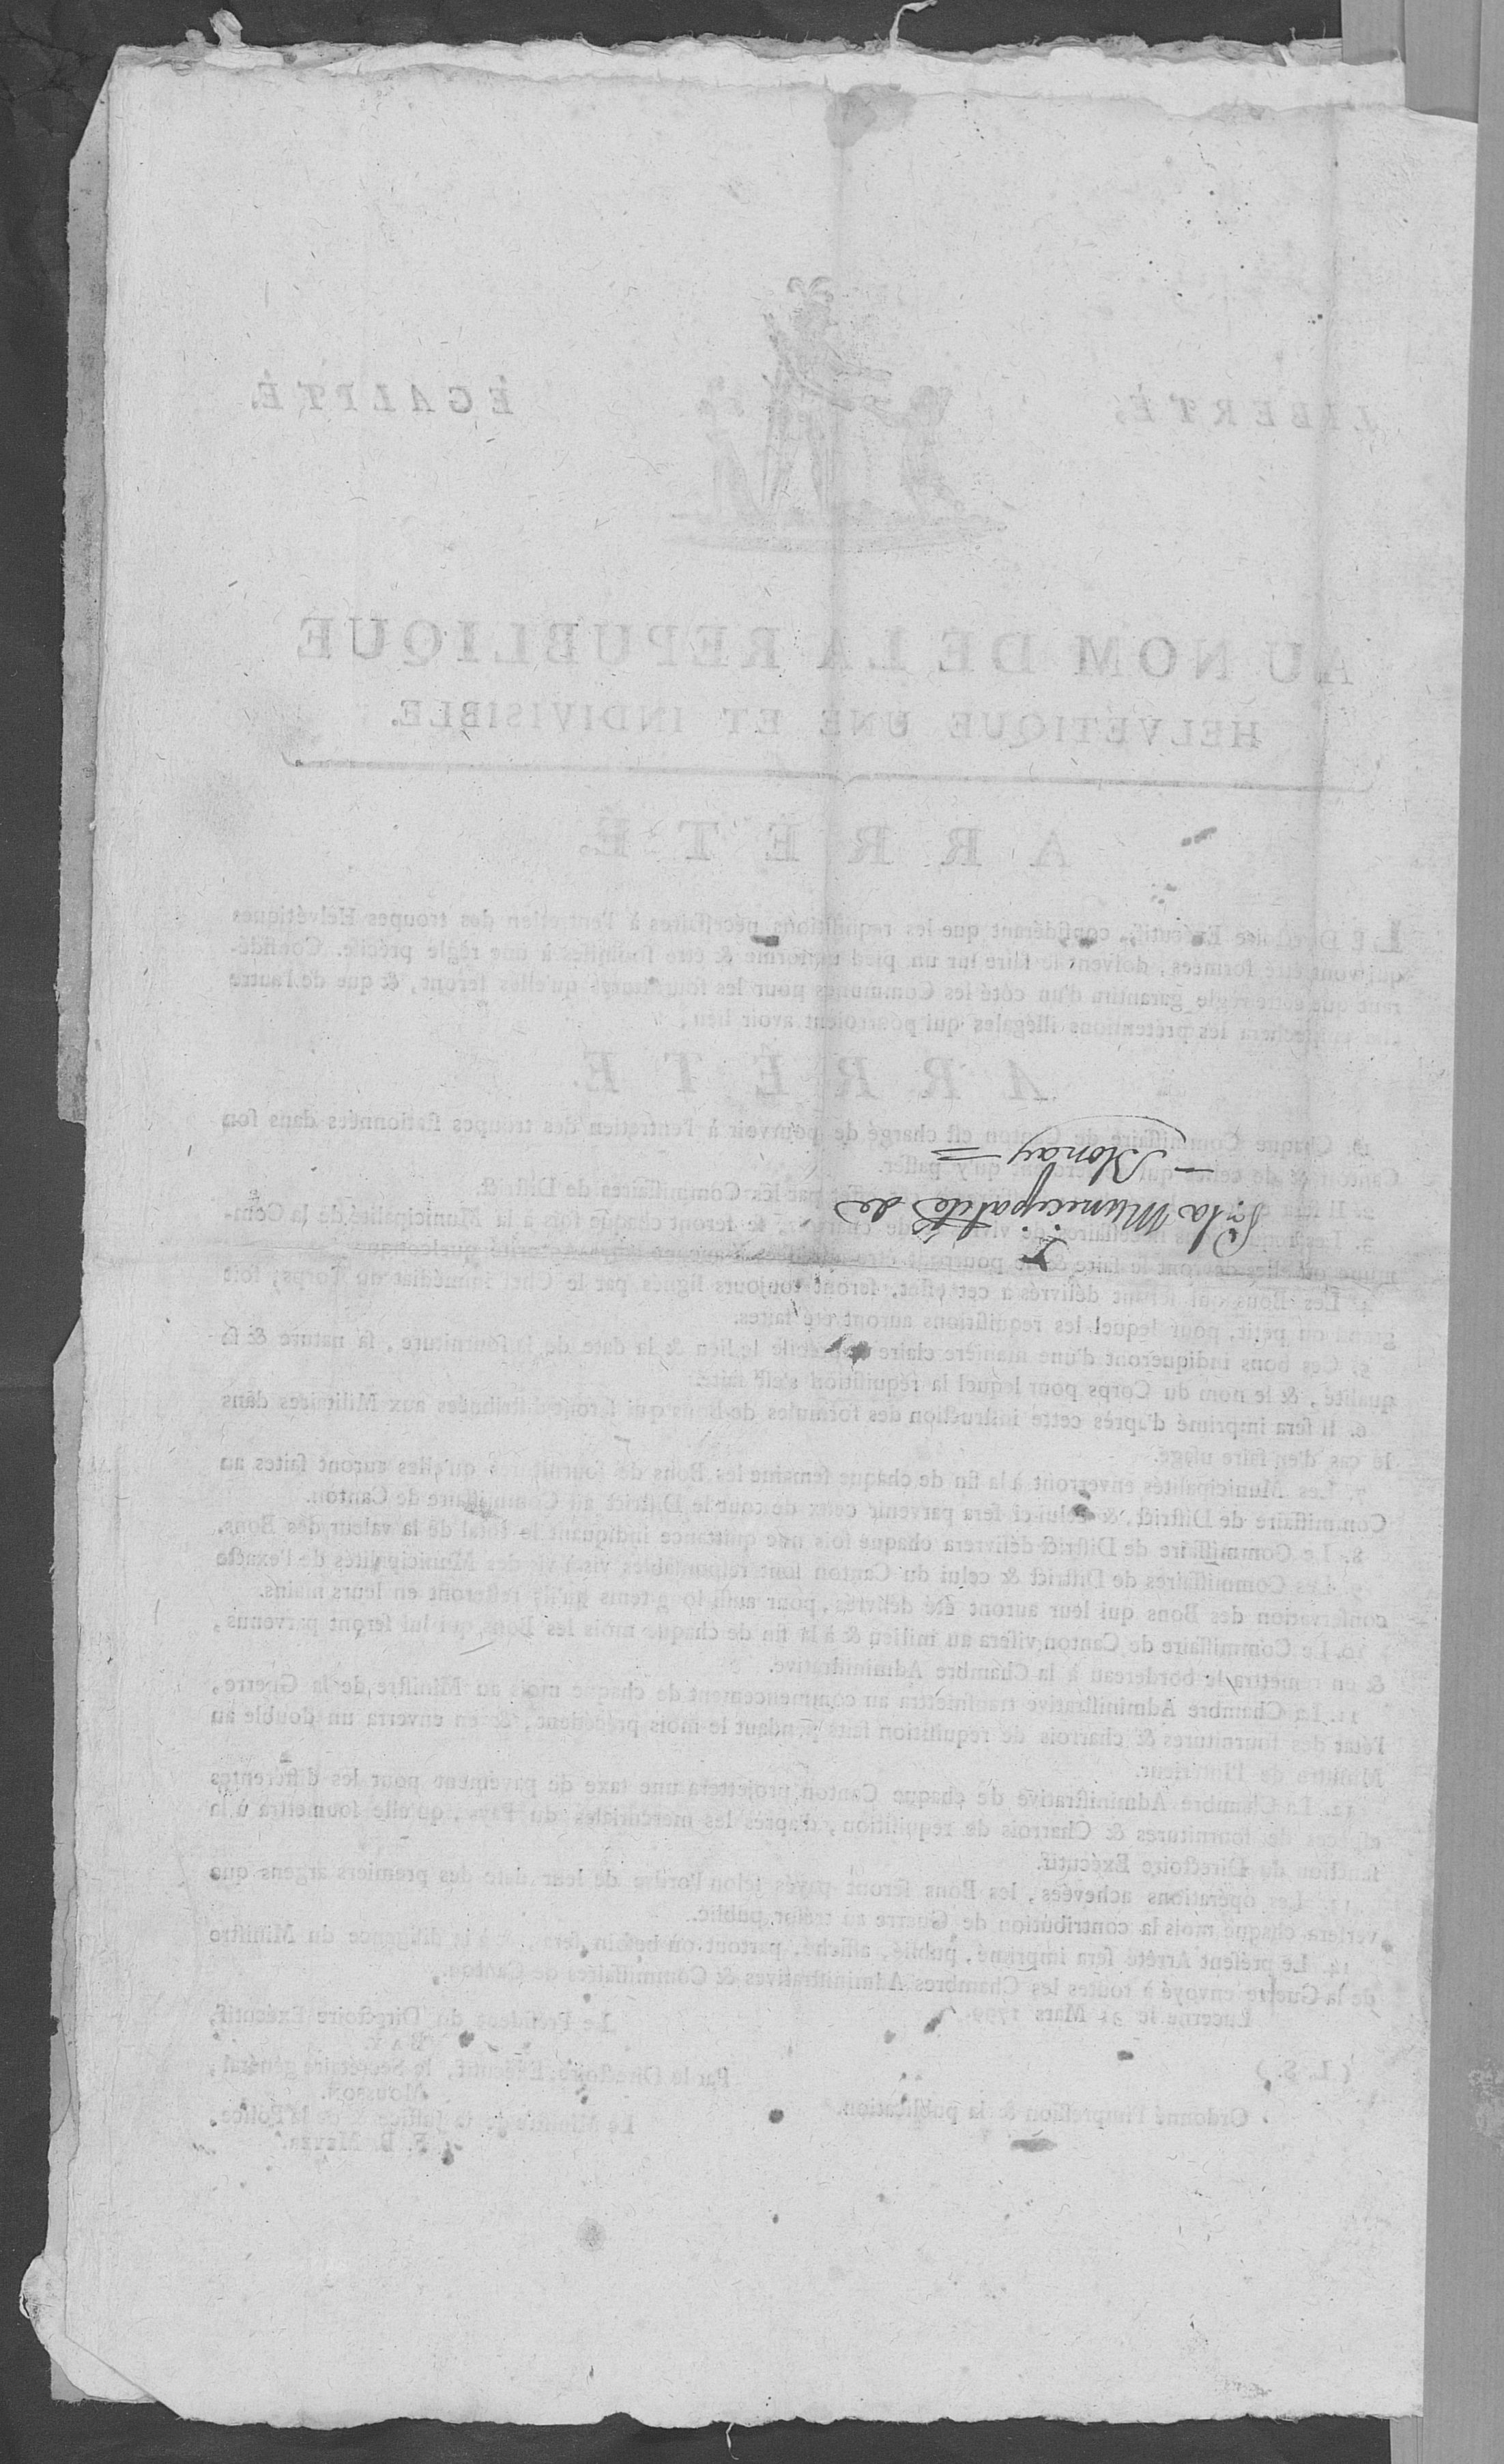 LIBERTÉ, ÉGALITÉ.
AU NOM DE LA REPUBLIQUE
HELVÉTIQUE UNE ET INDIVISIBLE.
ARRETÉ.
LE Exécutif, considérant que les requisitions nécessaires à l'entretien des troupes Helvétiques
qui vont être formées, doivent se faire sur un pied uniforme & être soumises à une règle précise. Considé-
rant que cette règle garantira d'un côté les Communes pour les fournitures qu'elles feront, & que de l'autre
elle empêchera les prétentions illégales qui pourroient avoir lieu,
ARRÊTE.
1. Chaque Commissaire de Canton est chargé de pourvoir à l'entretien des troupes stationnées dans son
Canton & de celles qui qu'y passer.
2. Il sera par les Commissaires de District.
3. Les de vivres de se feront chaque fois à la Municipalité de la Com-
mune où elles devront se faire & ne pourront être
4. Les Bons qui seront délivrés à cet effet, seront toujours signés par le Chef immédiat du Corps, soit
grand ou petit, pour lequel les requisitions auront été faites.
5. Ces bons indiqueront d'une manière claire & précise le lieu & la date de la fourniture, sa nature & sa
qualité, & le nom du Corps pour lequel la réquisition s'est faite.
6. Il sera imprimé d'après cette instruction des formules de Bons qui seront distribuées aux Militaires dans
le cas d'en faire usage.
7. Les Municipalités enverront à la fin de chaque semaine les Bons de fournitures qu'elles auront faites au
Commissaire de District, & celui-ci fera parvenir ceux de tout le District au Commissaire de Canton.
8. Le Commissaire de District délivrera chaque fois une quittance indiquant le total de la valeur des Bons.
9. Les Commissaires de District & celui du Canton sont responsables vis à vis des Municipalités de l'exacte
conservation des Bons qui leur auront été délivrés, pour aussi longtems qu'ils resteront en leurs mains.
10. Le Commissaire de Canton visera au milieu & à la fin de chaque mois les Bons qui lui seront parvenus,
& en remettra le bordereau à la Chambre Administrative.
11. La Chambre Administrative transmettra au commencement de chaque mois au Ministre de la Guerre,
l'état des fournitures & charrois de requisition faits pendant le mois précédent, & en enverra un double au
Ministre de l'Intérieur.
12. La Chambre Administrative de chaque Canton projettera une taxe de payement pour les différentes
espèces de fournitures & Charrois de requisition, d'après les mercuriales du Pays, qu'elle soumettra à la
sanction du Directoire Exécutif.
13. Les opérations achevées, les Bons seront payés selon l'ordre de leur date des premiers argens que
versera chaque mois la contribution de Guerre au trésor public.
14. Le présent Arrêté sera imprimé, publié, affiché, partout où besoin sera, à la diligence du Ministre
de la Guerre envoyé à toutes les Chambres Administratives & Commissaires de Canton.
Lucerne le 31 Mars 1799. Le Président du Directoire Exécutif,
BAY.
(L. S.) Par le Directoire Exécutif, le Secrétaire général,
MOUSSON.
Ordonné l'impression & la publication. Le Ministre de la Justice & de la Police,
F. B. MEYER.
la Municipalité de
Blonay